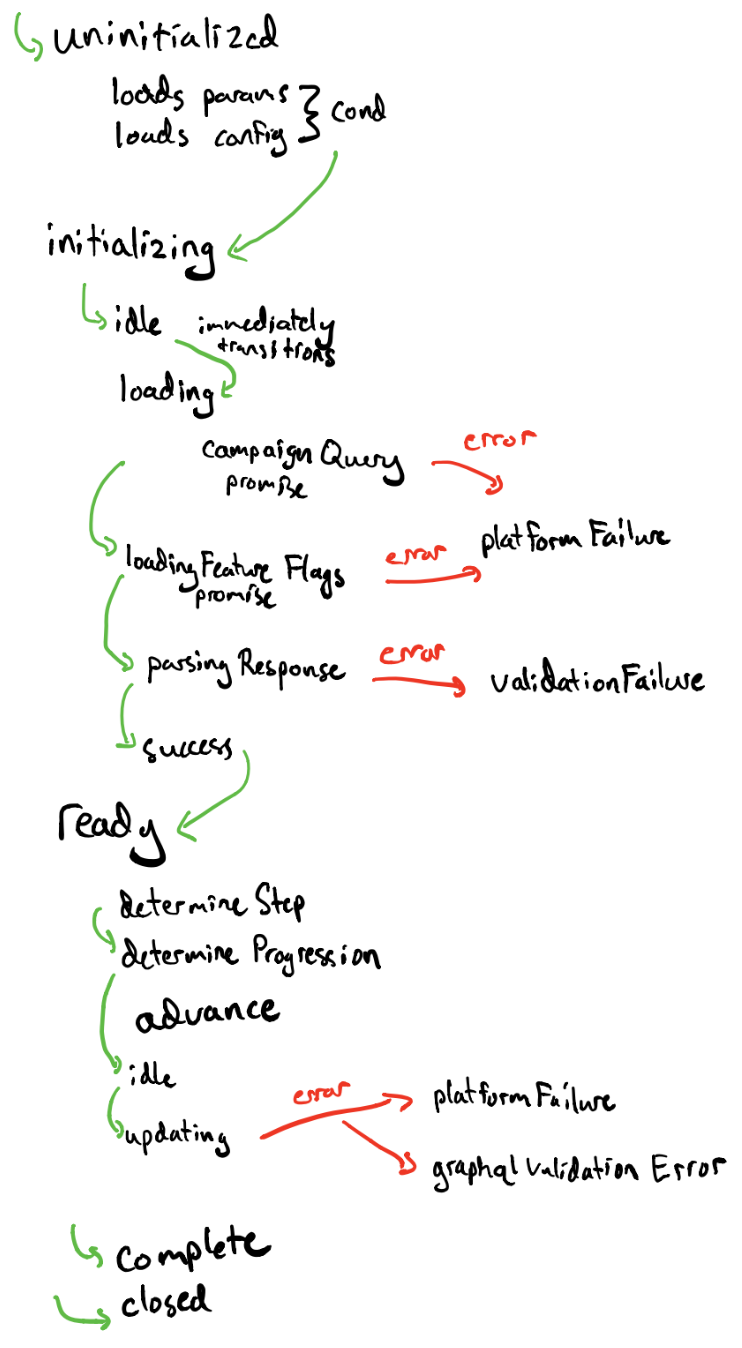 uninitialized
loads params
loads config } cond
initializing
idle immediately
transitions
loading
error
campaign Query
promise
platform Failure
error
loading Feature Flags
promise
error
parsing Response
validation Failure
success
ready
determine Step
determine Progression
advance
idle
error
platform Failure
updating
graphql validation Error
complete
closed